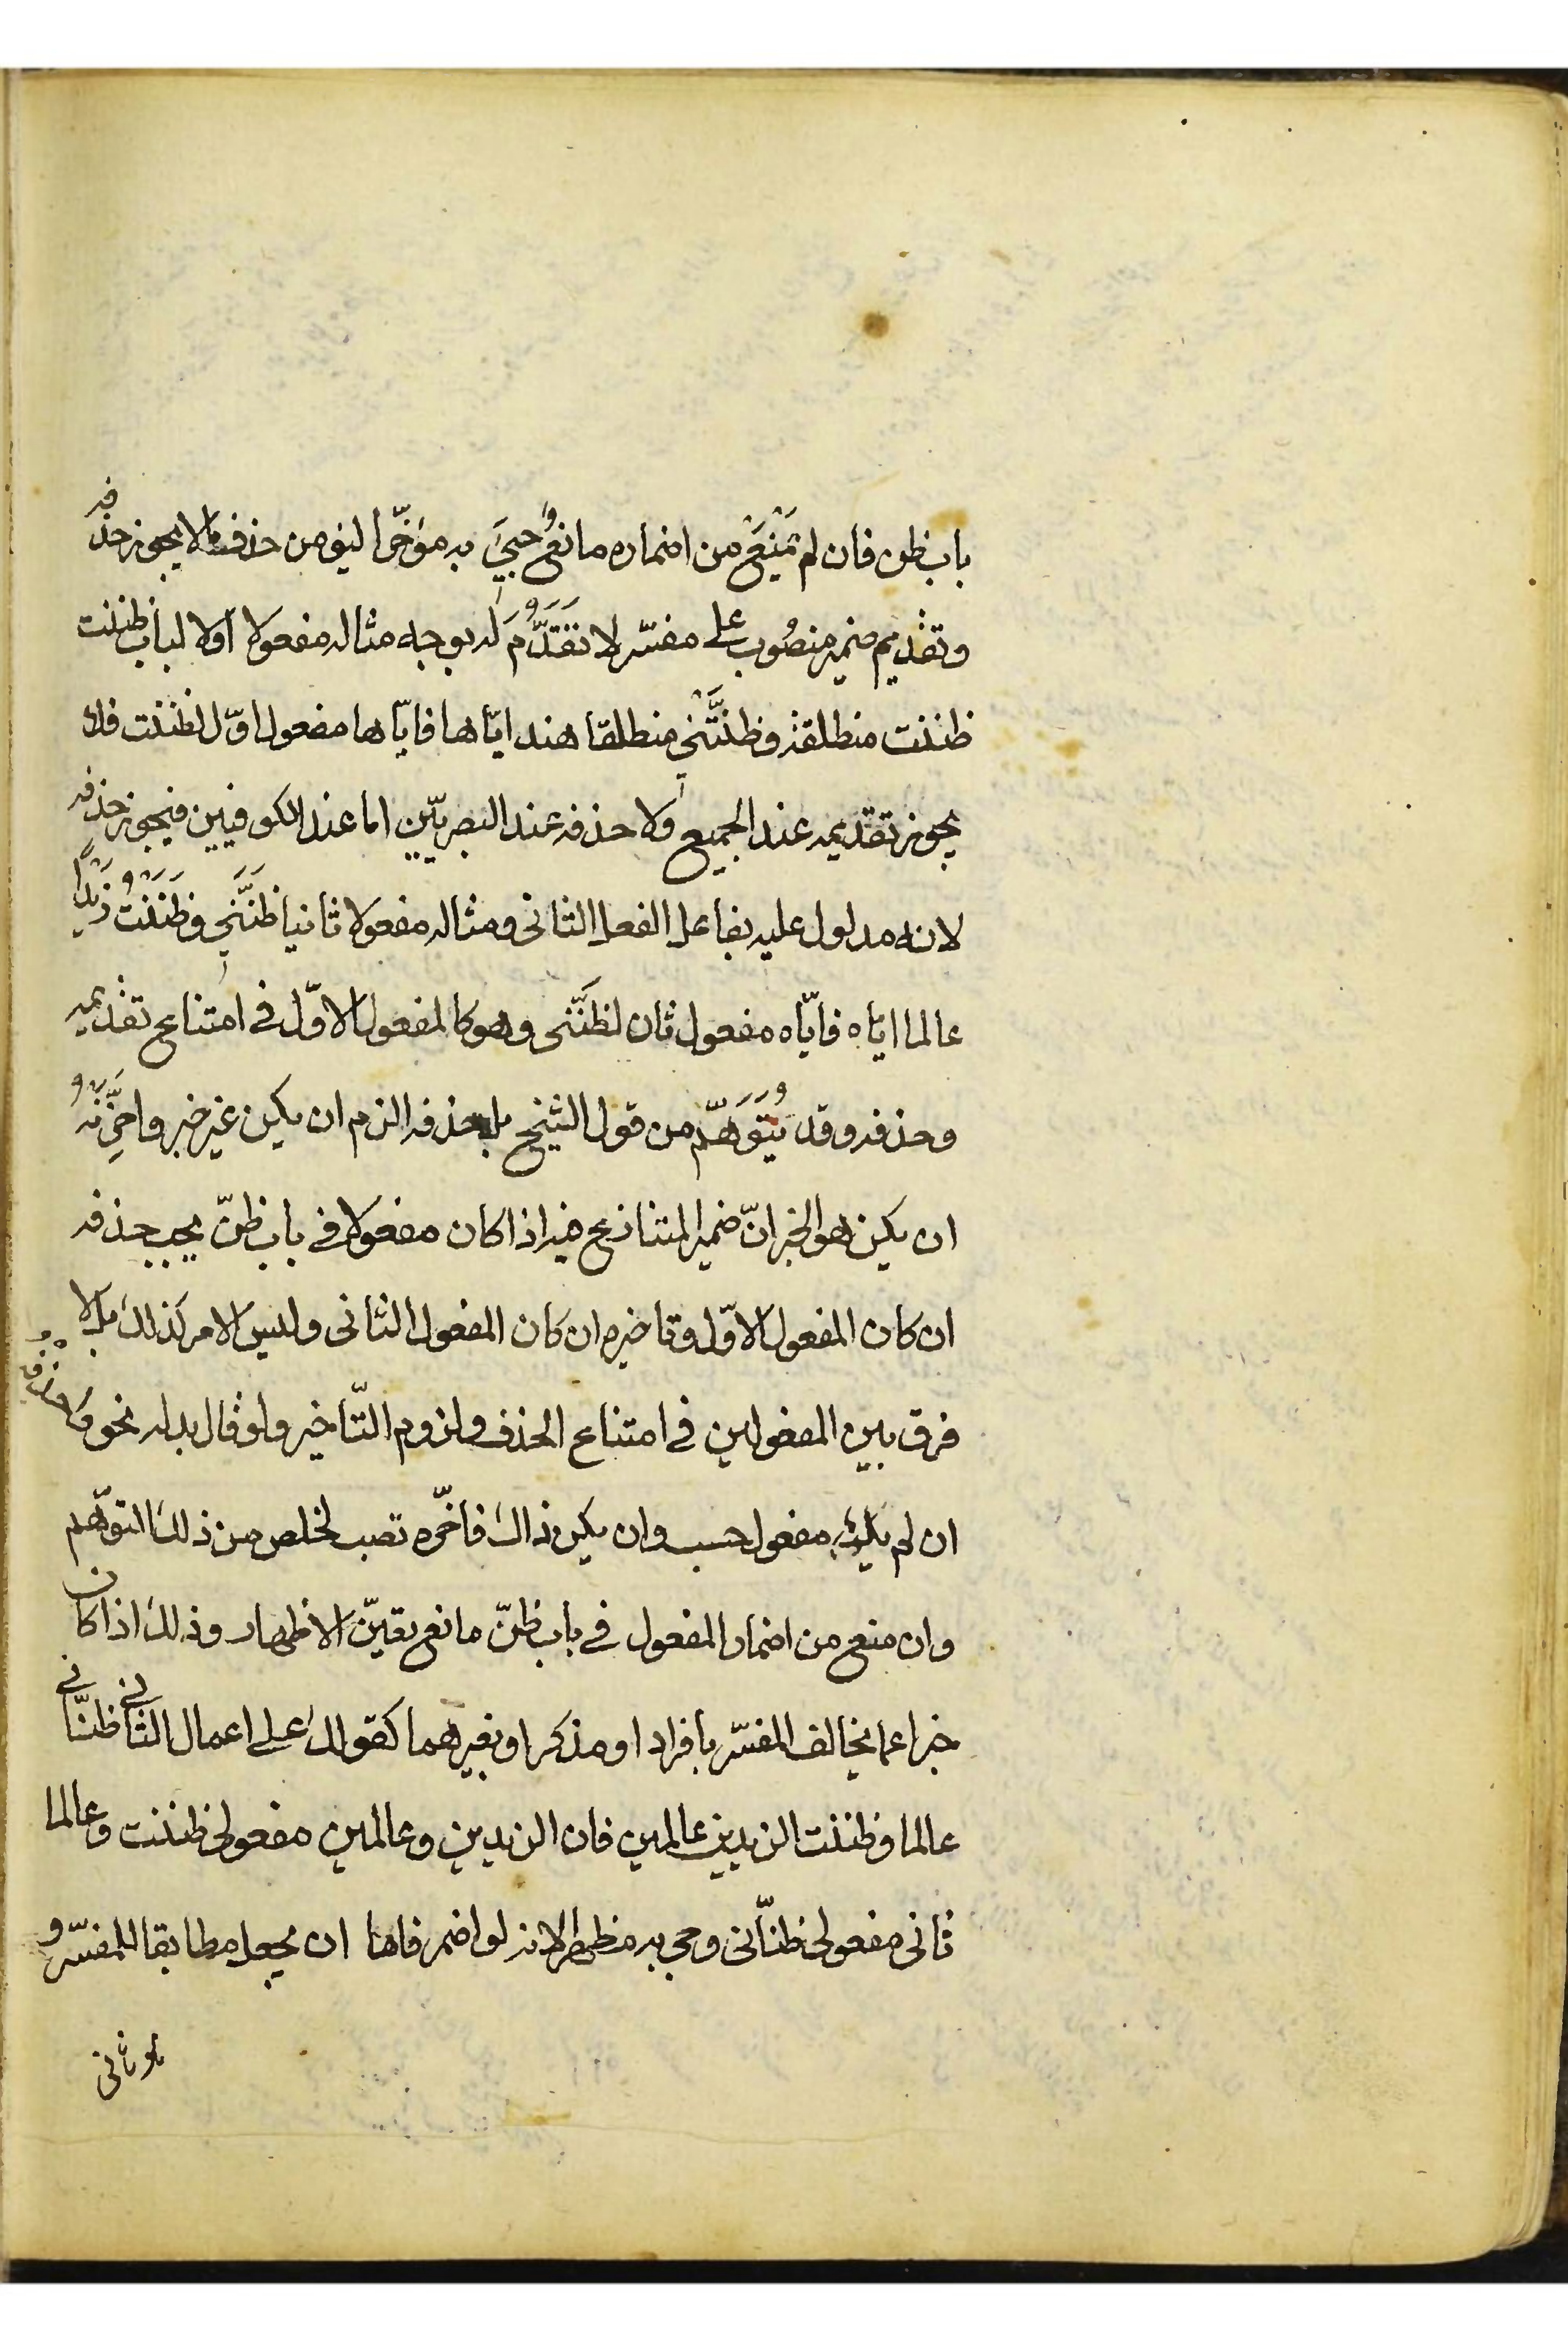 باب ظن فان لم يَمْنَعْ من اضماره مانعٌ جيئَ به مؤخّرا ليؤمن حذف ما لا يجوز حذفه
وتقديم ضمير منصُوب على مفسّر لا تَقَدُّمَ له بوجه مثاله مفعولا اولا لباب ظننت
ظننت منطلقة وظنَّتْنى منطلقا هند ايّاها فايّاها مفعول اوّل لظننت فلا
يجوز تقديمه عند الجميع ولا حذفه عند البصريّين اما عند الكوفيين فيجوز حذفه
لانه مدلول عليه بفاعل الفعل الثانى ومثاله مفعولا ثانيا ظَنَّنِي وظَنَنْتُ زَيْدًا
عالما ايّاه فايّاه مفعول ثان لظنَّنى وهو كالمفعول الاوّل فى امتناع تقديمه
وحذفه وقد يُتَوَهَّم من قول الشيخ بل حذفه الزم ان يكن غير خبر واخّرنْهُ
ان يكن هو الخبر انّ ضمير المتنازع فيه اذا كان مفعولا فى باب ظنّ يجب حذفه
ان كان المفعول الاوّل وتاخيره ان كان المفعول الثانى وليس الامر كذلك بل لا
فرق بين المفعولين فى امتناع الحذف ولزوم التّاخير ولو قال بدله نحو واحذفه
ان لم يك مفعول حسب وان يكن ذاك فاخّره تصب لخلص من ذلك التوهّم
وان منع من اضمار المفعول فى باب ظنّ مانع تعيّن الاظهار وذلك اذا كان
خبرا عما يخالف المفسّر بافراد او مذكرا وبغيرهما كقولك على اعمال الثانى ظنّانى
عالما وظننت الزيدين عالمين فان الزيدين وعالمين مفعولى ظننت وعالما
ثانى مفعولى ظنّانى وجى به مظهرا لانه لو اضمر فاما ان يجعل مطابقا للمفسّر و
هو ثانى